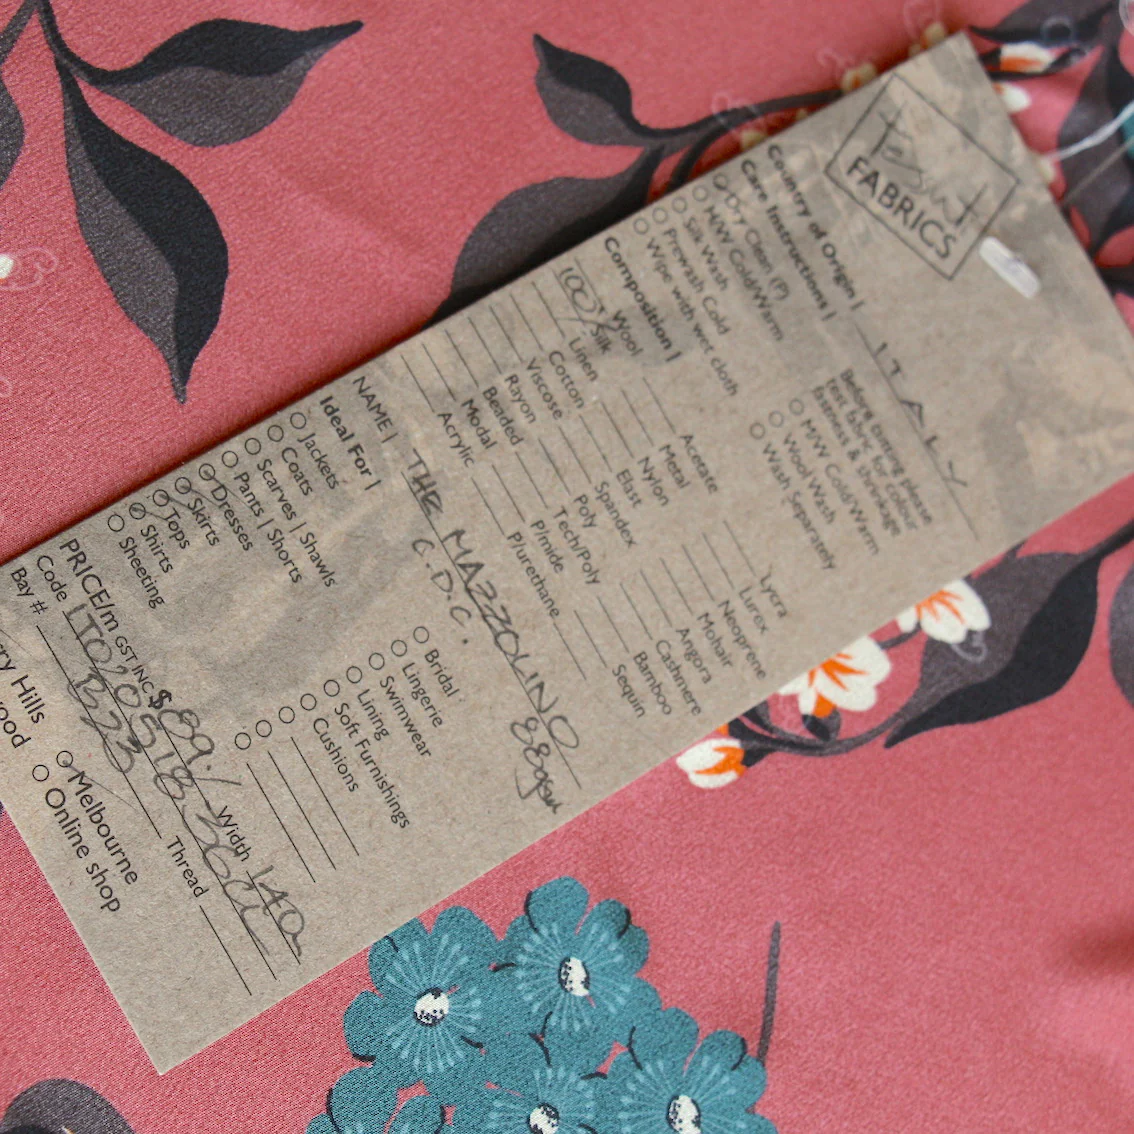 Tessuti
FABRICS
Country of Origin | ITALY
Care Instructions |
Dry Clean (P)
H/W Cold/Warm
Silk Wash
Prewash Cold
Wipe with wet cloth
Before cutting please
test fabric for colour
fastness & shrinkage
M/W Cold/Warm
Wool Wash
Wash Separately
Composition |
Wool
100% Silk
Linen
Cotton
Viscose
Rayon
Beaded
Modal
Acrylic
Acetate
Metal
Nylon
Elast
Spandex
Poly
Tech/Poly
P/mide
P/urethane
Lycra
Lurex
Neoprene
Mohair
Angora
Cashmere
Bamboo
Sequin
NAME | THE MAZZOLINO
C.D.C. 88gsm
Ideal For |
Jackets
Coats
Scarves | Shawls
Pants | Shorts
Dresses
Skirts
Tops
Shirts
Sheeting
Bridal
Lingerie
Swimwear
Lining
Soft Furnishings
Cushions
PRICE/m GST INC $89./ Width 140
Code
Bay # B23 Thread
ry Hills
ood
Melbourne
Online shop